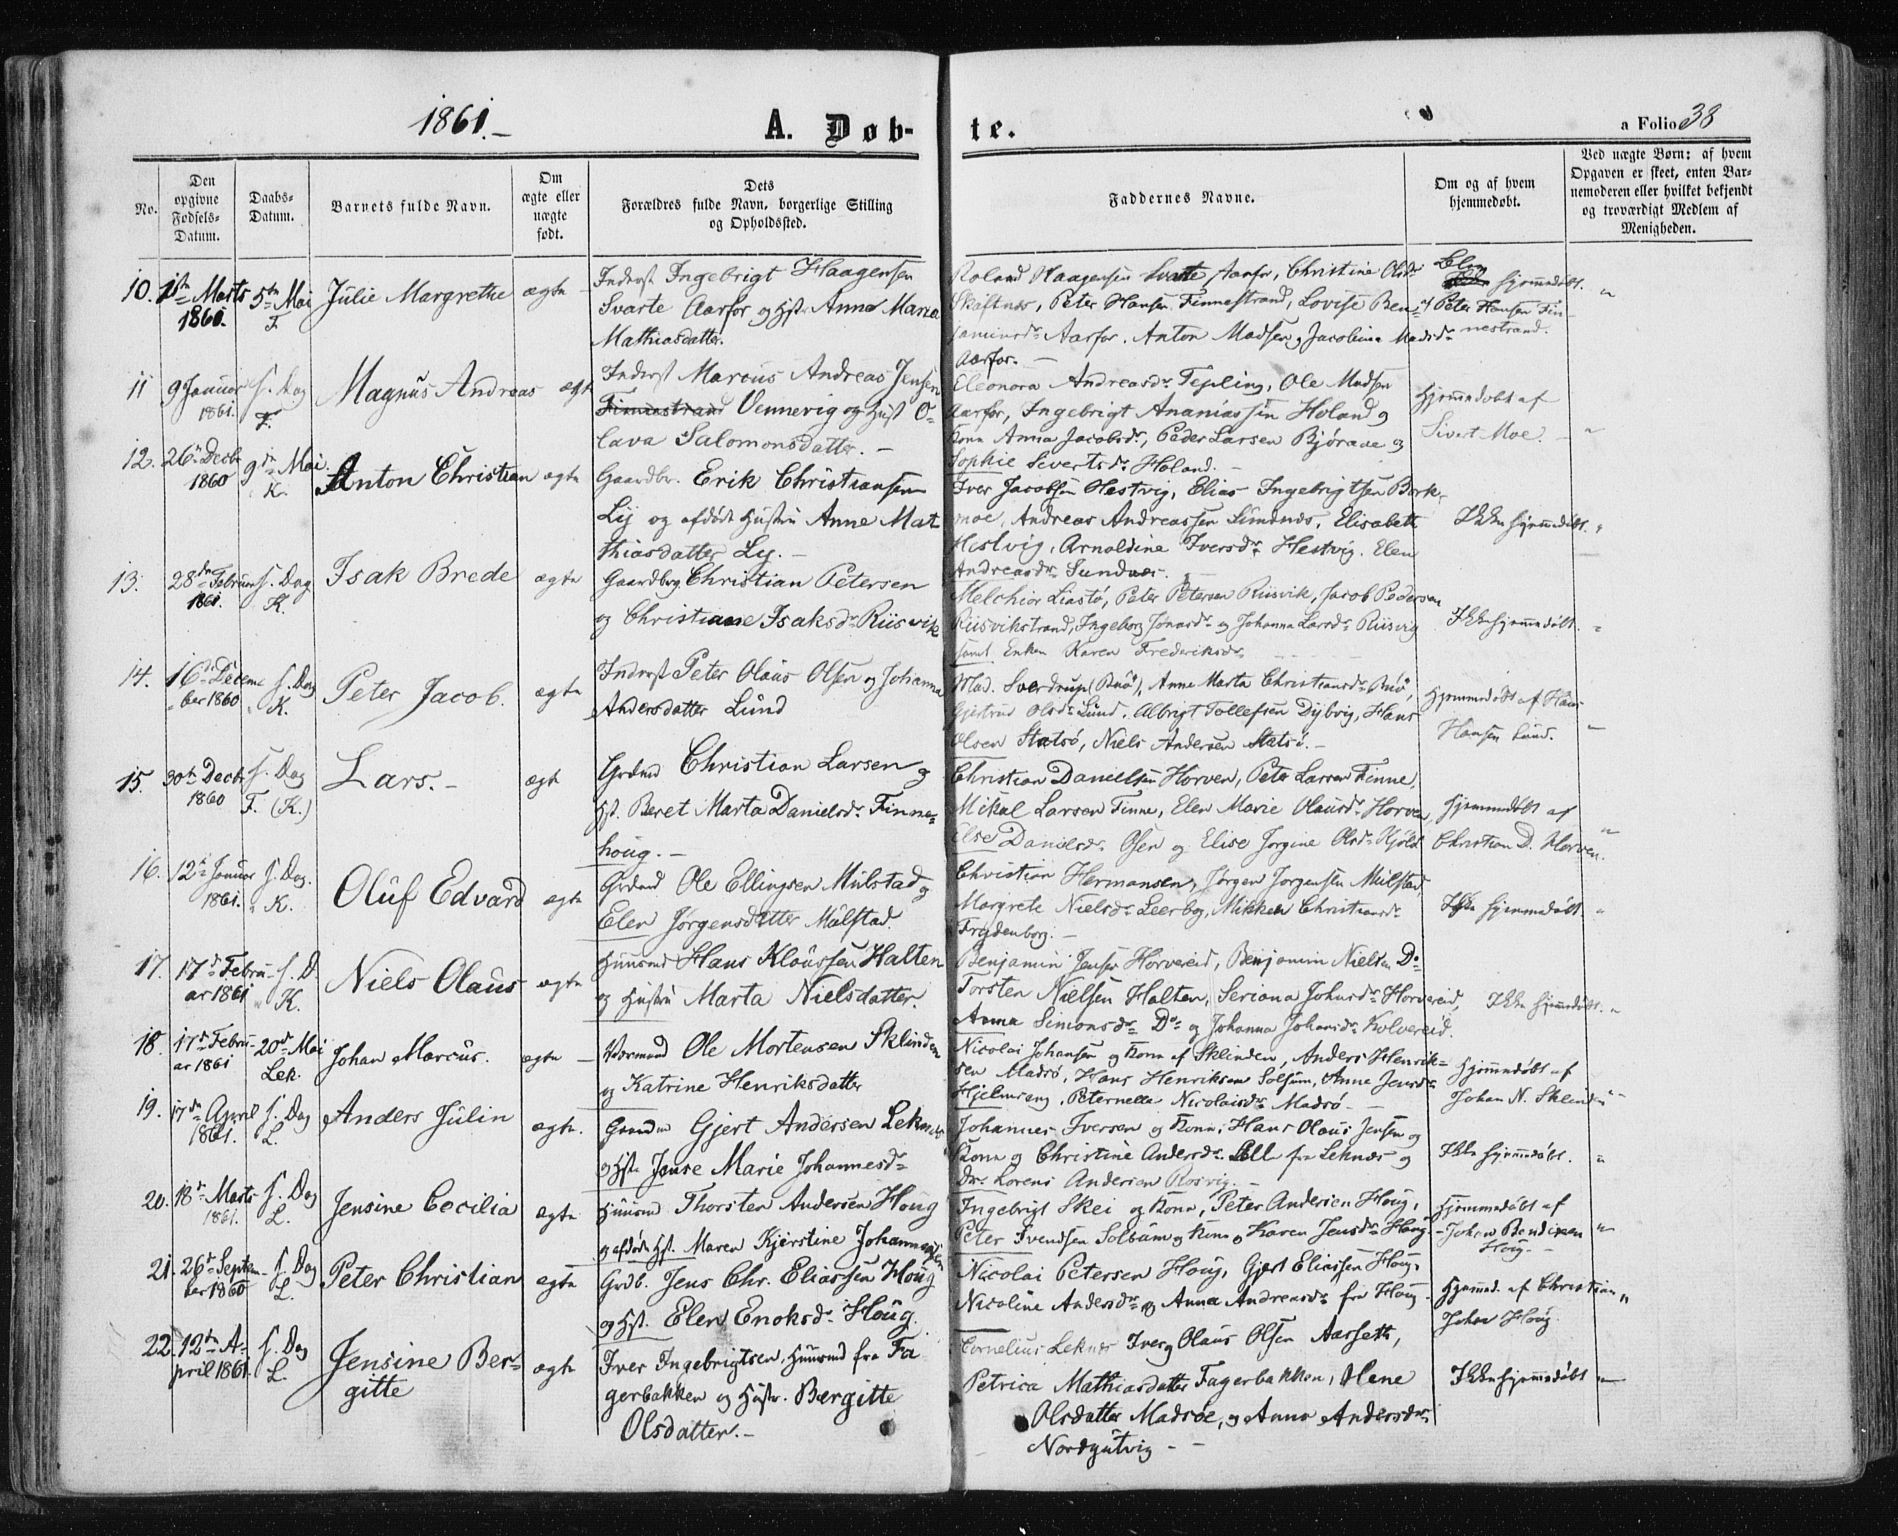 1861.-
A. Døb-
te.
a Folio 38
No.
Den opgivne Fødsels-Datum.
Daabs-Datum.
Barnets fulde Navn.
Om ægte eller uægte født.
Dets
Forældres fulde Navn, borgerlige Stilling
og Opholdssted.
Faddernes Navne.
Om og af hvem hjemmedøbt.
Ved uægte Børn: af hvem
Opgaven er skeet, enten Bar-
nemoderen eller hvilket bekjendt
og troværdigt Medlem af
Menigheden.
10. 1ste Marts 1861. 5te Mai F. Julie Margrethe ægte
Inderst Ingebrigt Haagensen
Svarte Aarfor og Hst. Anne Maria
Mathiasdatter.
Roland Haagensen Svarte Aarfor, Christine Olsdr
Skaftnes, Peter Hansen Finnestrand, Lovise Ben-
jaminsdr Aarfor. Anton Madsen, Jacobine Madsdr
Aarfor. -
Blev hjemmedøbt
af Peter Hansen Fin-
nestrand. "
11 9 Januar 1861. s. Dag F. Magnus Andreas ægte
Inderst Marcus Andreas Jensen
Finnestrand Vennevig og Hust O-
lava Salomonsdatter. -
Eleonora Andreasdr Tepling, Ole Madsen
Aarfor, Ingebrigt Ananiassen Holand og
Kone Anna Jacobsdr, Peder Larsen Bjøraae og
Sophie Sivertsdr Holand. -
Hjemmedøbt af
Sivert Moe. - "
12. 26de Decbr 1860 9de Mai. K. Anton Christian ægte
Gaardbr. Erik Christiansen
Ly og afdøde Hustru Anne Mat
thiasdatter Ly. -
Iver Jacobsen Hestvig, Elias Ingebrigtsen Bork-
moe, Andreas Andreassen Sundnes, Elisabeth
Hestvig, Arnoldine Iversdr Hestvig. Elen
Andreasdr Sundnes.
Ikke hjemmedøbt. "
13. 28de Februar 1861. s. Dag K. Isak Brede ægte
Gaardbrg. Christian Petersen
og Christiane Isaksdr Riisvik
Melchior Liastø, Peter Petersen Riisvik, Jacob Pedersen
Riisvikstrand, Ingeborg Jonasdr og Johanna Larsdr Riisvig
samt Enken Karen Frederiksdr
Ikke hjemmedøbt. "
14. 16de Decem- ber 1860 s. Dag K. Peter Jacob. ægte
Inderst Peter Olaus Olsen og Johanna
Andersdatter Lund
Mad. Sverdrup (Buø), Anne Marta Christiansdr Buø,
Gjertrud Olsdr Lund, Albrigt Tollefsen Dybvig, Hans
Olsen Statsø, Niels Andersen Statsø. -
Hjemmedøbt af Hans
Hansen Lund. "
15. 30te Decbr 1860 s. Dag F. (K.) Lars. - ægte
Grdmd Christian Larsen og
Hst. Beret Marta Danielsdr Finne-
houg. -
Christian Danielsen Horven, Peter Larsen Finne,
Mikal Larsen Finne, Elen Marie Olausdr Horven,
Else Danielsdr Osen og Elise Jørgine Olsdr Kjøld
Hjemmedøbt af
Christian D. Horven. "
16. 12te Januar 1861. s. Dag. K. Oluf Edvard ægte
Grdmd Ole Ellingsen Mulstad og
Elen Jørgensdatter Mulstad.
Christian Hermansen, Jørgen Jørgensen Mulstad,
Margrete Nielsdr Leerbg, Mikkel Christiansdr
Frydenborg. -
Ikke hjemmedøbt. "
17. 17de Febru- ar 1861 s. D. K. Niels Olaus ægte
Huusmd Hans Klaussen Halten
og Hustru Marta Nielsdatter.
Benjamin Jensen Horvereid, Benjamin Nielsen Do
Torsten Nielsen Halten, Seriana Johnsdr Horvereid,
Anna Simonsdr Do og Johanna Johansdr Kolvereid.
Ikke hjemmedøbt. "
18. 17de Febru- ar 1861 20de Mai Lek. Johan Marcus. ægte -
Ole Mortensen Sklinden
og Katrine Henriksdatter
Nicolai Johansen og Kone af Sklinden, Anders Henrik-
sen Madsø, Hans Henriksen Solsem, Anne Jensdr
Hjelmseng, Peternelle Nicolaisdr Madsø -
Hjemmedøbt af
Johan N. Sklinden "
19. 17de April 1861. s. Dag L. Anders Julin ægte.
Gaardm Gjert Andersen Leknes
og Hst. Jense Marie Johannesdr
Johannes Iversen og Kone, Hans Olaus Jensen og
Kone og Christine Andersdr Alle fra Leknes og
Dr. Lorens Andersen Rosvig. -
Ikke hjemmedøbt. "
20. 18de Marts 1861. s. Dag L. Jensine Cecilia ægte
Huusmd Thorsten Andersen Houg
og afdøde Hst. Maren Kjerstine Johannesdr
Ingebrigt Skei og Kone, Peter Andersen Houg,
Peter Svendsen Solbum og Kone og Karen Jensdr Houg -
Hjemmedøbt af
Johan Bendixen
Houg - "
21. 26de Septem- ber 1860 s. Dag L. Peter Christian ægte
Grdb. Jens Chr. Eliassen Houg
og Hst. Elen Enoksdr Houg.
Nicolai Petersen Houg, Gjert Eliassen Houg,
Nicoline Andersdr og Anna Andreasdr fra Houg
Hjemmed. af Christian
Johan Houg. "
22. 12te A- pril 1861. s. Dag L. Jensine Ber-
gitte ægte
Iver Ingebrigtsen, Huusmd fra Fa
gerbakken og Hustr. Bergitte
Olsdatter. -
Cornelius Leknes, Iver og Olaus Olsen Aarseth,
Petrica Mathiasdatter Fagerbakken, Olene
Olsdatter Madsøe, og Anna Andersdr
Nordgutvig -
Ikke hjemmedøbt "